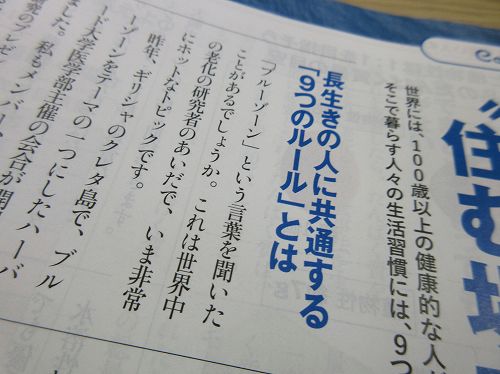 住む場
世界には、100歳以上の健康的な人
そこで暮らす人々の生活習慣には、9つ
長生きの人に共通する
「9つのルール」とは
「ブルーゾーン」という言葉を聞いた
ことがあるでしょうか。これは世界中
の老化の研究者のあいだで、いま非常
にホットなトピックです。
昨年、ギリシャのクレタ島で、ブル
ーゾーンをテーマの一つにしたハーバ
ード大学医学部主催の会合が開
ました。私もメンバー
のプレゼ